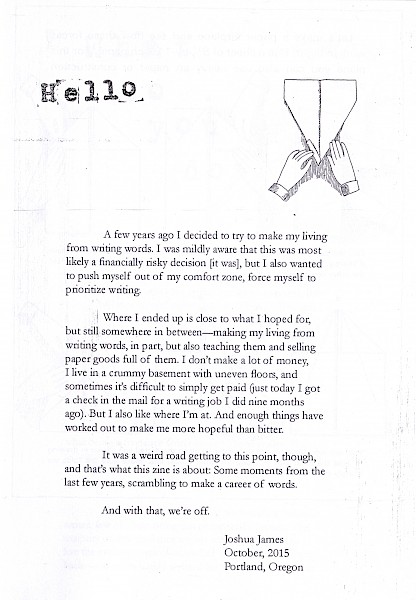 Hello
A few years ago I decided to try to make my living
from writing words. I was mildly aware that this was most
likely a financially risky decision [it was], but I also wanted
to push myself out of my comfort zone, force myself to
prioritize writing.
Where I ended up is close to what I hoped for,
but still somewhere in between—making my living from
writing words, in part, but also teaching them and selling
paper goods full of them. I don't make a lot of money,
I live in a crummy basement with uneven floors, and
sometimes it's difficult to simply get paid (just today I got
a check in the mail for a writing job I did nine months
ago). But I also like where I'm at. And enough things have
worked out to make me more hopeful than bitter.
It was a weird road getting to this point, though,
and that's what this zine is about: Some moments from the
last few years, scrambling to make a career of words.
And with that, we're off.
Joshua James
October, 2015
Portland, Oregon